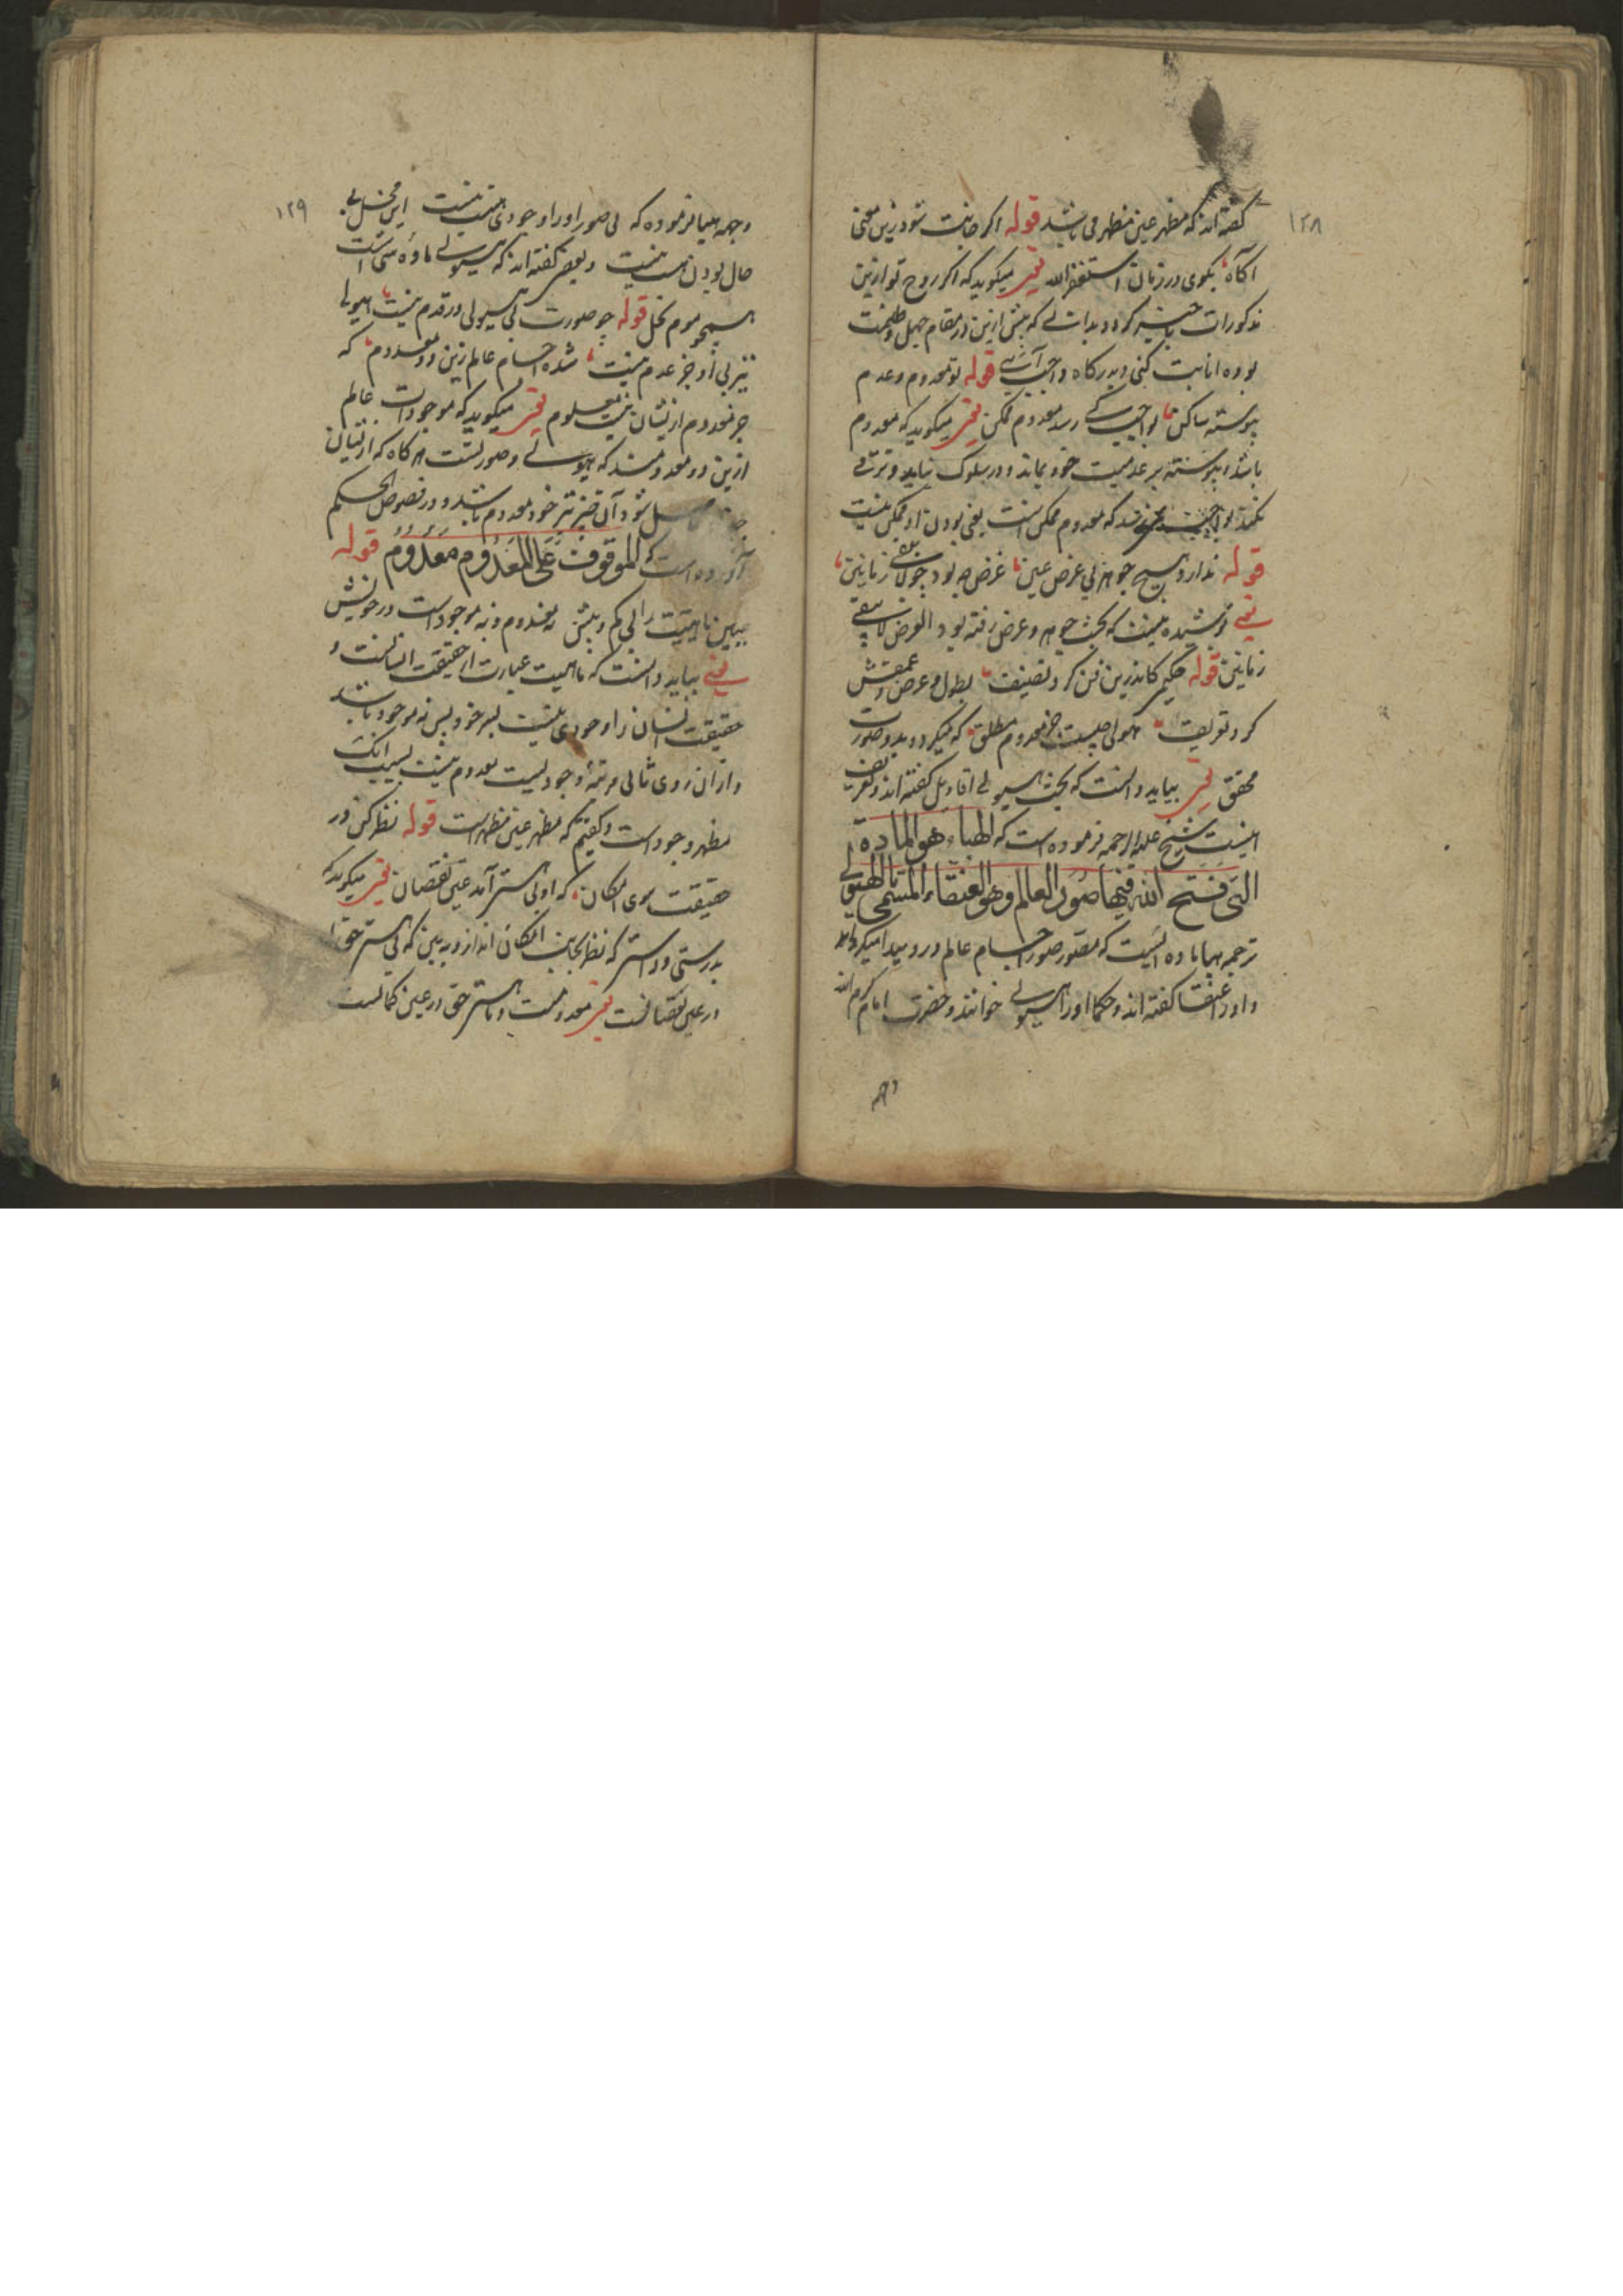 ۱۲۸
گفته اند که مظهر عین مظهر می باشد قوله اگر جانت شود زین معنی
آگاه بگوی در زمان استغفر الله یعنی میگوید که اگر روح تو ازین
مذکورات با خبر گردد و بدانی که پیش ازین در مقام جهل و ظلمت
بوده انابت کنی و بدرگاه واجب آئی قوله تو معدوم و عدم
پیوسته ساکن بواجب کی رسد معدوم ممکن یعنی میگوید که معدوم
باشد و پیوسته بر عدمیت خود بماند و در سلوک نیاید و ترقی
نکند بواجب نرسد که معدوم ممکن است یعنی بودن او ممکن نیست
قوله ندارد هیچ جوهر بی عرض عین عرض چه بود چو لا یبقی زمانین
یعنی پوشیده نیست که بحث جوهر و عرض رفته بود العرض لا یبقی
زمانین قوله حکیمی کاندرین فن کرد تصنیف بطول و عرض و عمقش
کرد تعریف هیولی چیست جز معدوم مطلق که میگردد بدو صورت
محقق یعنی بباید دانست که بحث هیولی اقاویل گفته اند و تعریف
اینست شیخ علیه الرحمه فرموده است که الهباء هو المادة
التی فتح الله فیها صور العالم وهو العنقاء المسمی بالهیولی
ترجمه هبا ماده ایست که مصور صور اجسام عالم در و پیدا میگرداند
و او را عنقا گفته اند و حکما او را هیولی خوانند و حضرت امام کرم الله
وجه
۱۲۹
وجهه هبا فرموده که بی صور او را وجودی نیست این محل بی
حال بودن نیست و بعضی گفته اند که هیولی ماده شی است
همچو موم نحل قوله چو صورت بی هیولی در قدم نیست هیولی
نیز بی او جز عدم نیست شده اجسام عالم زین دو معدوم که
جز معدوم ازیشان نیست معلوم یعنی میگوید که موجودات عالم
ازین دو معدومند که هیولی و صورتست هر گاه که ازیشان
حاصل شود آن نیز خود معدوم باشد و در فصوص الحکم
آورده است که الموقوف علی المعدوم معدوم قوله
ببین ماهیت را بی کم و بیش نه معدوم و نه موجود است در خویش
یعنی بباید دانست که ماهیت عبارت از حقیقت انسانست و
حقیقت انسان را وجودی نیست بسر خود پس نه موجود باشد
و از آن روی ثانی مرتبه وجود لیست معدوم نیست بسبب آنک
مظهر وجود است و گفتیم که مظهر عین مظهر است قوله نظر کن در
حقیقت سوی امکان که او بی هستی آمد عین نقصان یعنی میگوید که
بدرستی و راستی که نظر بجانب امکان انداز و ببین که بی هستی حق
در عین نقصانست یعنی معدومست و با هستی حق در عین کمالست